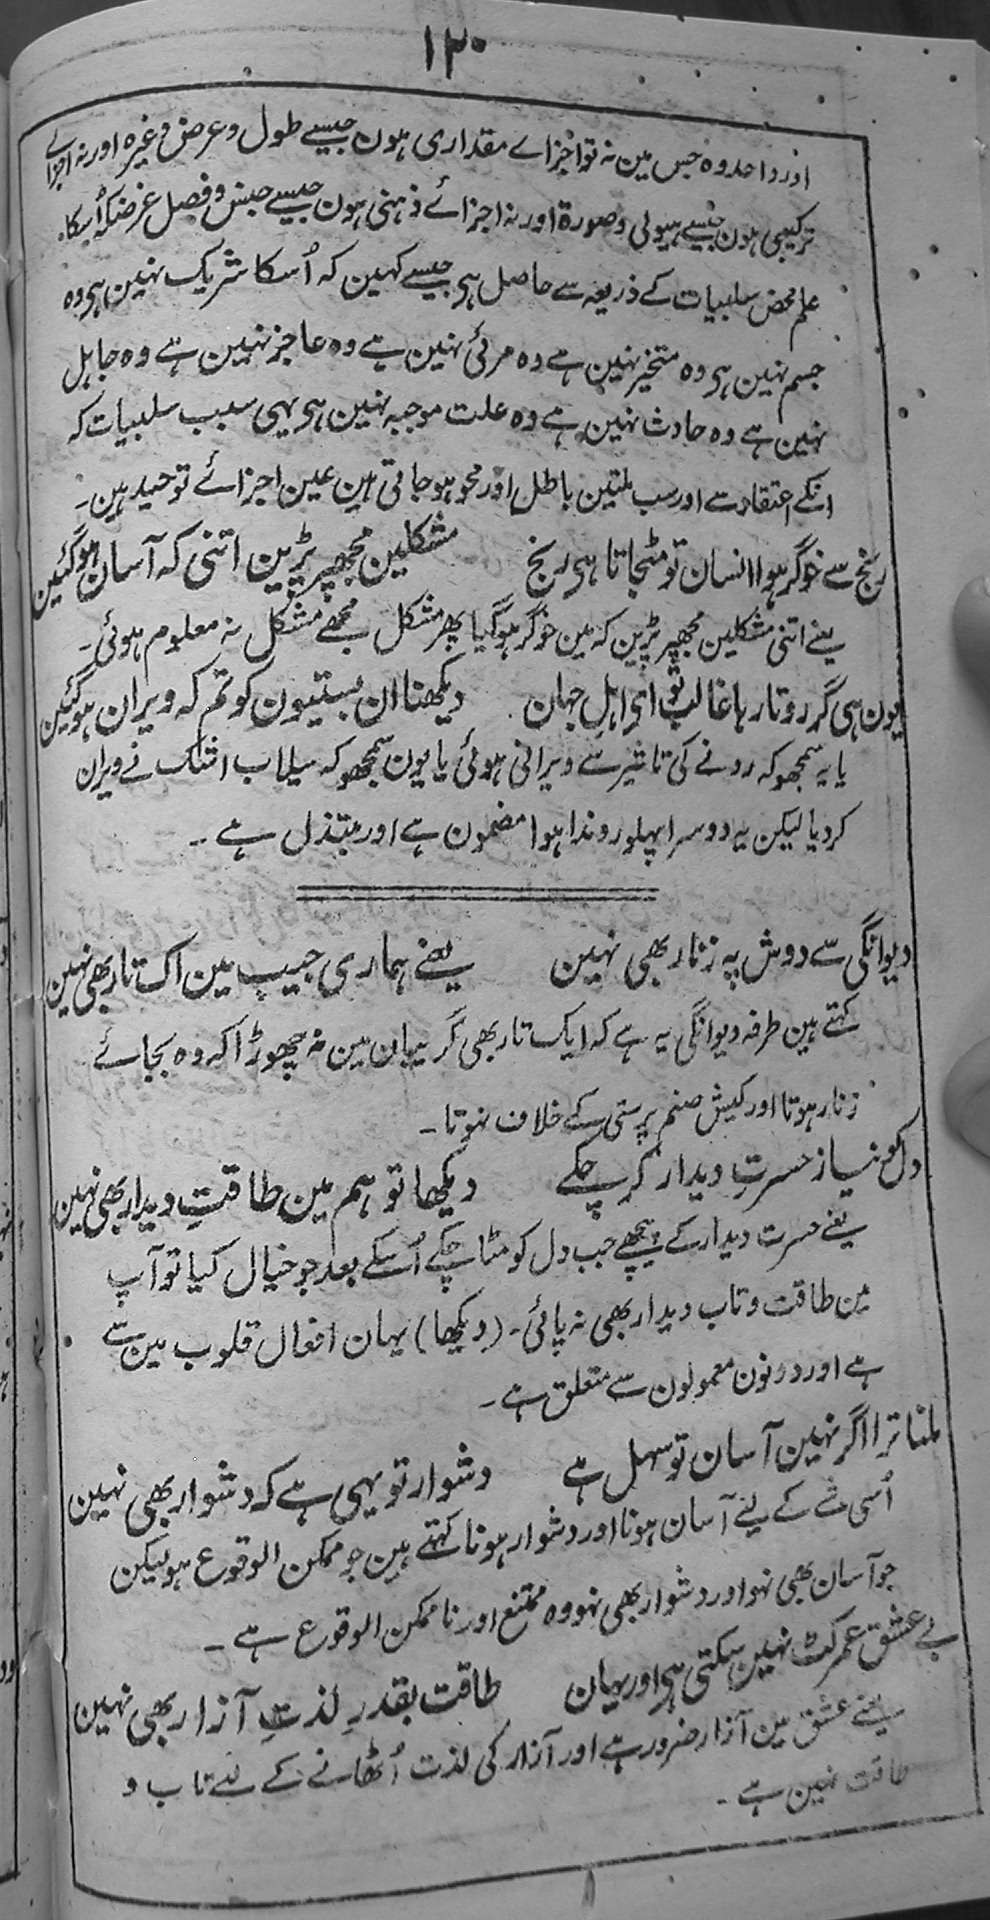 ۱۳۰
اور واحد وہ جس مین نہ تو اجزاے مقداری ہون جیسے طول و عرض وغیرہ اور نہ اجزاے
ترکیبی ہون جیسے ہیولی و صورۃ اور نہ اجزائے ذہنی ہون جیسے جنس و فصل غرضکہ اُسکا
علم محض سلبیات کے ذریعہ سے حاصل ہی جیسے کہین کہ اُسکا شریک نہین ہی وہ
جسم نہین ہی وہ متحیز نہین ہے وہ مرئی نہین ہے وہ عاجز نہین ہے وہ جاہل
نہین ہے وہ حادث نہین ہے وہ علت موجبہ نہین ہی یہی سبب سلبیات کہ
انکے اعتقاد سے اور سب ملتین باطل اور محو ہو جاتی ہین عین اجزائے توحید ہین۔
رنج سے خوگر ہوا انسان تو مٹجاتا ہی رنج مشکلین مجھپر پڑین اتنی کہ آسان ہو گئین
یعنے اتنی مشکلین مجھپر پڑین کہ مین خوگر ہو گیا پھر مشکل مجھے مشکل نہ معلوم ہوئی۔
یون ہی گر روتا رہا غالب تو ای اہلِ جہان دیکھنا ان بستیون کو تم کہ ویران ہو گئین
یا یہ سمجھو کہ رونے کی تاثیر سے ویرانی ہوئی یا یون سمجھو کہ سیلاب اشک نے ویران
کردیا لیکن یہ دوسرا پہلو روندا ہوا مضمون ہے اور مبتذل ہے۔
دیوانگی سے دوش پہ زنار بھی نہین یعنے ہماری جیب مین اک تار بھی نہین
کہتے ہین طرفہ دیوانگی یہ ہے کہ ایک تار بھی گریبان مین نہ چھوڑا کہ وہ بجائے
زنار ہوتا اور کیش صنم پرستی کے خلاف نہوتا۔
دل کو نیاز حسرتِ دیدار کر چکے دیکھا تو ہم مین طاقتِ دیدار بھی نہین
یعنے حسرت دیدار کے پیچھے جب دل کو مٹا چکے اُسکے بعد جو خیال کیا تو آپ
مین طاقت و تاب دیدار بھی نہ پائی۔ (دیکھا) یہان افعال قلوب مین سے
ہے اور دونون معمولون سے متعلق ہے۔
ملنا ترا اگر نہین آسان تو سہل ہے دشوار تو یہی ہے کہ دشوار بھی نہین
اُسی شے کے لیے آسان ہونا اور دشوار ہونا کہتے ہین جو ممکن الوقوع ہو لیکن
جو آسان بھی نہو اور دشوار بھی نہو وہ ممتنع اور ناممکن الوقوع ہے۔
بے عشق عمر کٹ نہین سکتی ہی اور یہان طاقت بقدرِ لذتِ آزار بھی نہین
یعنے عشق مین آزار ضرور ہے اور آزار کی لذت اُٹھانے کے لئے تاب و
طاقت نہین ہے۔